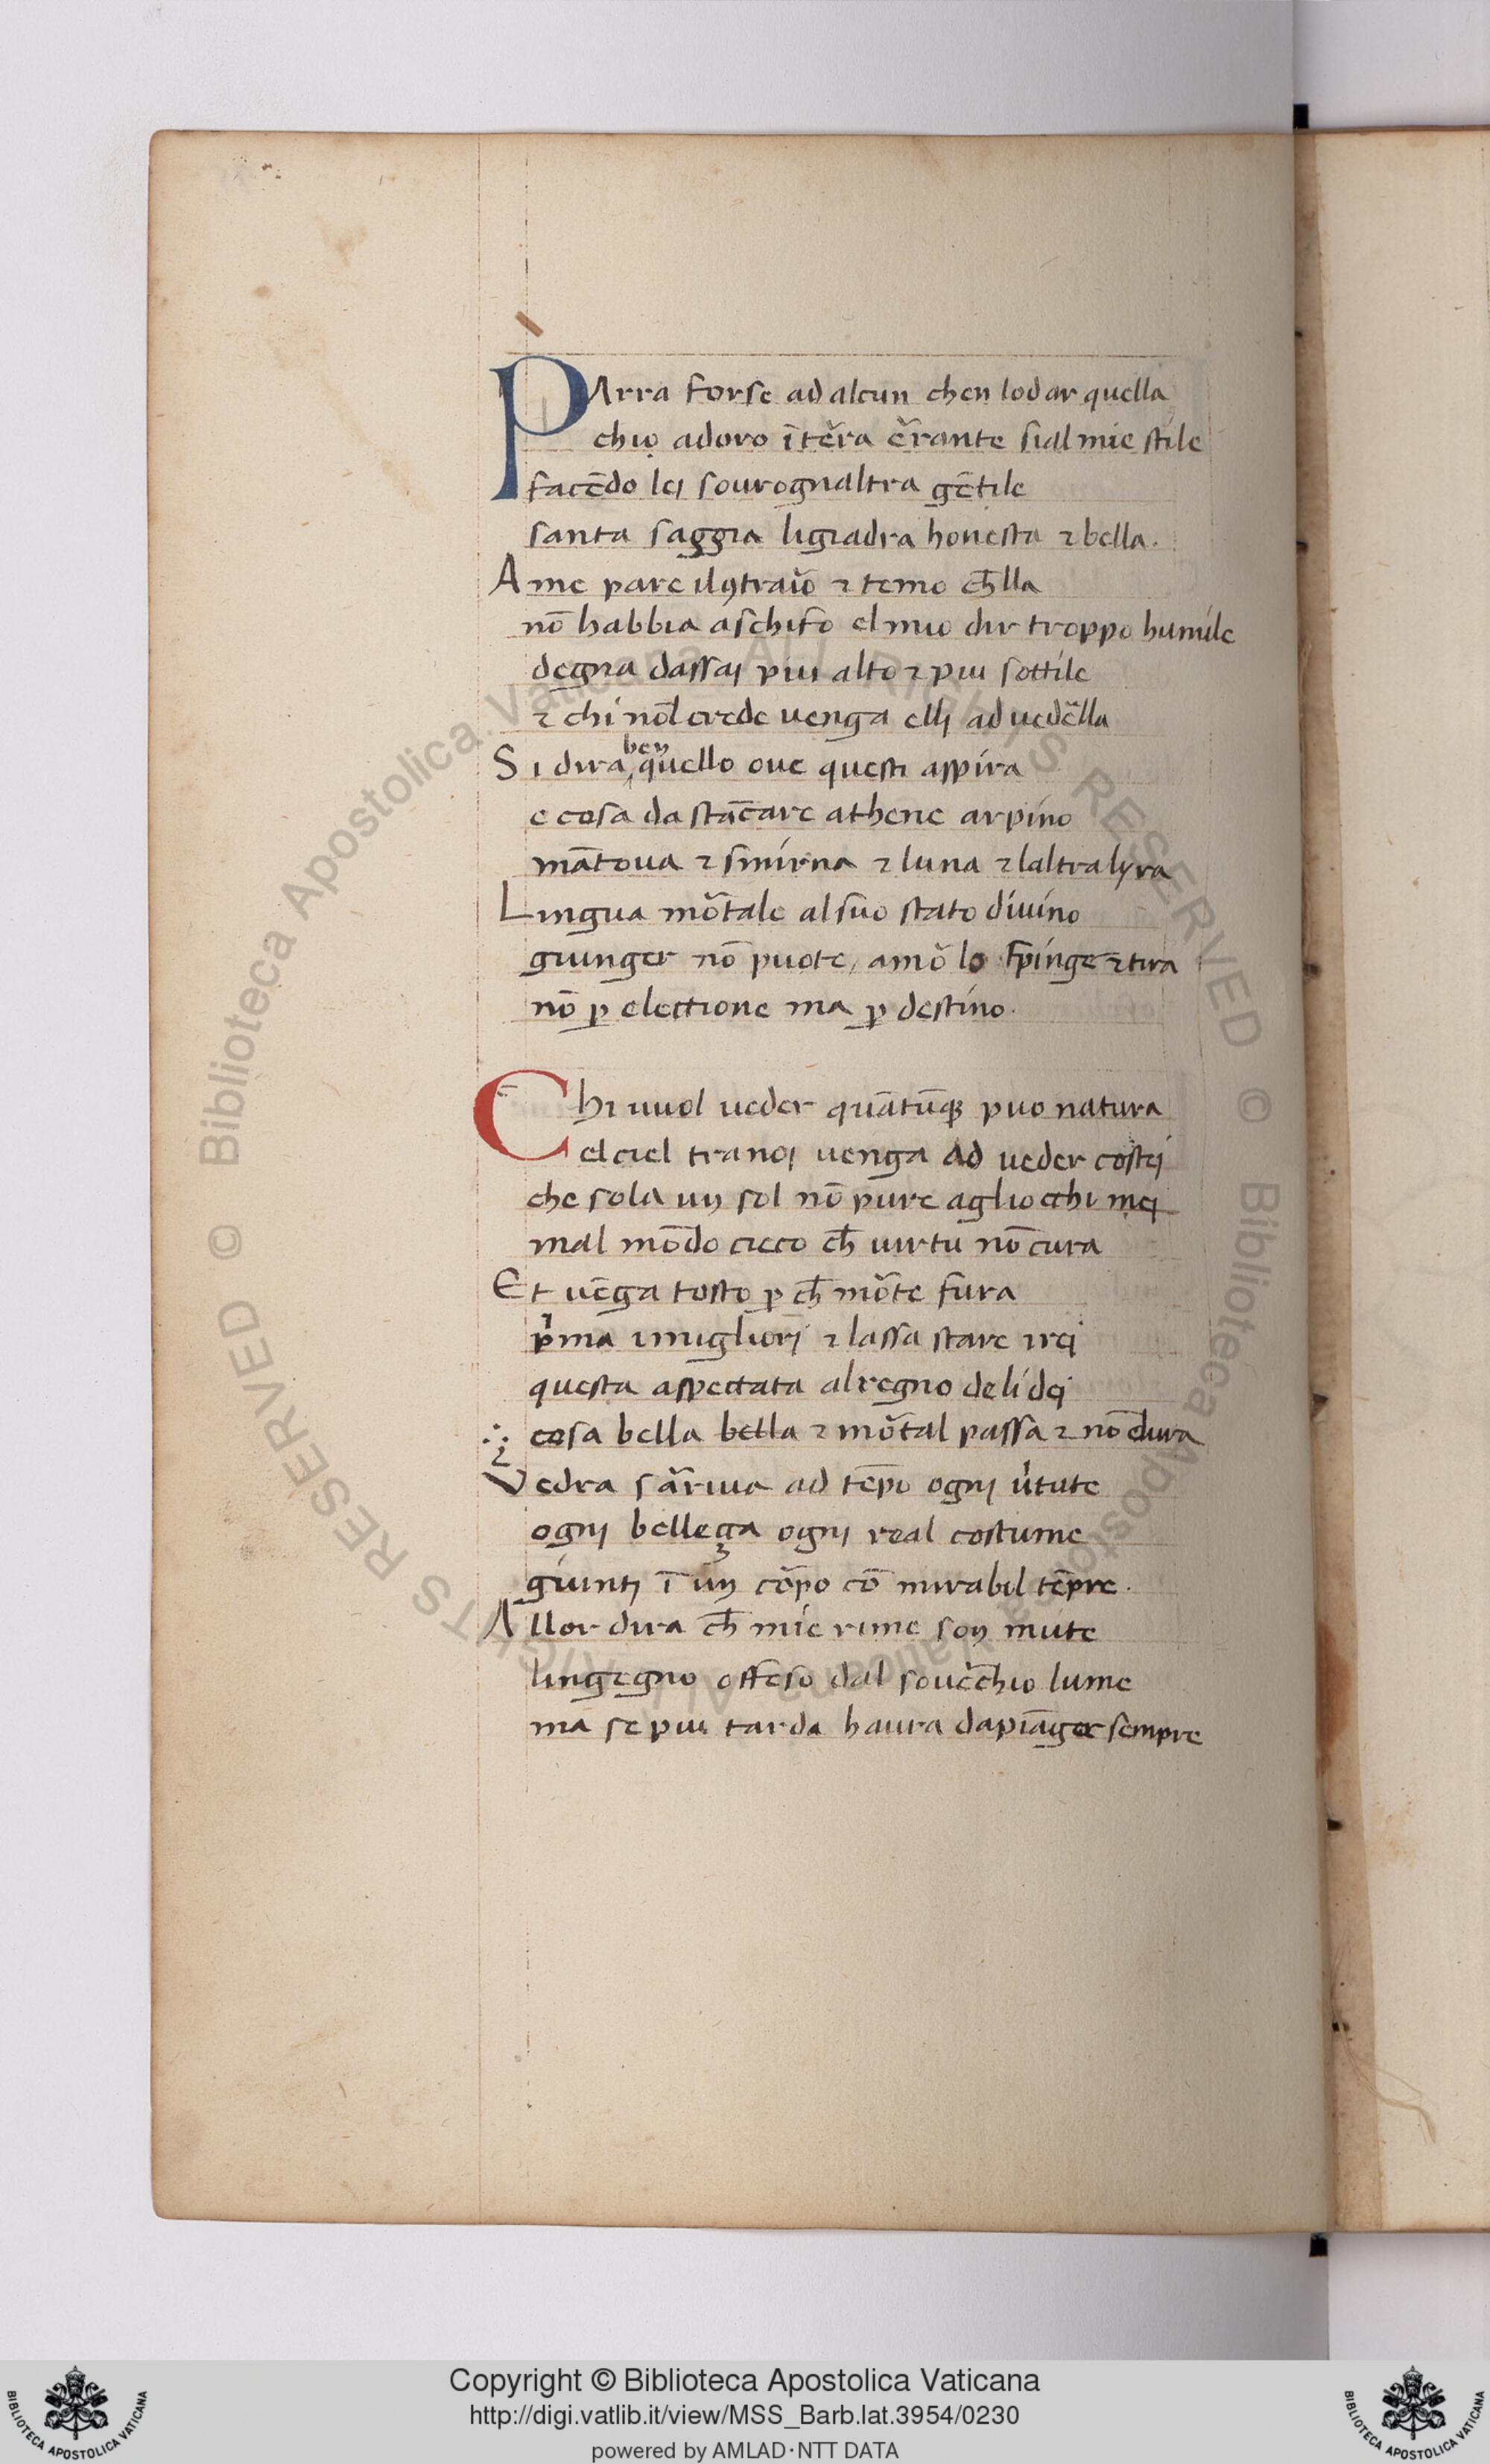 PArra forse ad alcun chen lodar quella
chio adoro ī tēra ērante sial mie stile
facēdo lei sourognaltra gētile
santa saggia ligiadra honesta ⁊ bella.
A me pare il ꝯtraio ⁊ temo ch̄lla
nō habbia aschifo el mio dir troppo humile
degna dassai piu alto ⁊ piu sottile
⁊ chi nōl crede uenga elli ad uedēlla
Si dira ben quello oue questi aspira
e cosa da stācare athene arpino
mātoua ⁊ smirna ⁊ luna ⁊ laltra lyra
Lingua mōtale al suo stato diuino
giunger nō puote, amō lo spinge ⁊ tira
nō ꝑ electione ma ꝑ destino.
Chi uuol ueder quātūqꝫ puo natura
el ciel tranoi uenga ad ueder costei
che sola un sol nō pure agliocchi mei
mal mōdo cieco ch̄ uirtu nō cura
Et uēga tosto ꝑ ch̄ mōte fura
p̍ma imigliori ⁊ lassa stare irei
questa aspectata al regno deli dei
cosa bella bella ⁊ mōtal passa ⁊ nō dura
Vedra sāriua ad tēpo ogni u̍tute
ogni belleça ogni real costume
giunti ī un cōpo cō mirabil tēpre.
Allor dira ch̄ mie rime son mute
lingegno offeso dal souēchio lume
ma se piu tarda haura dapiāger sempre
Copyright © Biblioteca Apostolica Vaticana
http://digi.vatlib.it/view/MSS_Barb.lat.3954/0230
powered by AMLAD·NTT DATA
BIBLIOTECA APOSTOLICA VATICANA
BIBLIOTECA APOSTOLICA VATICANA